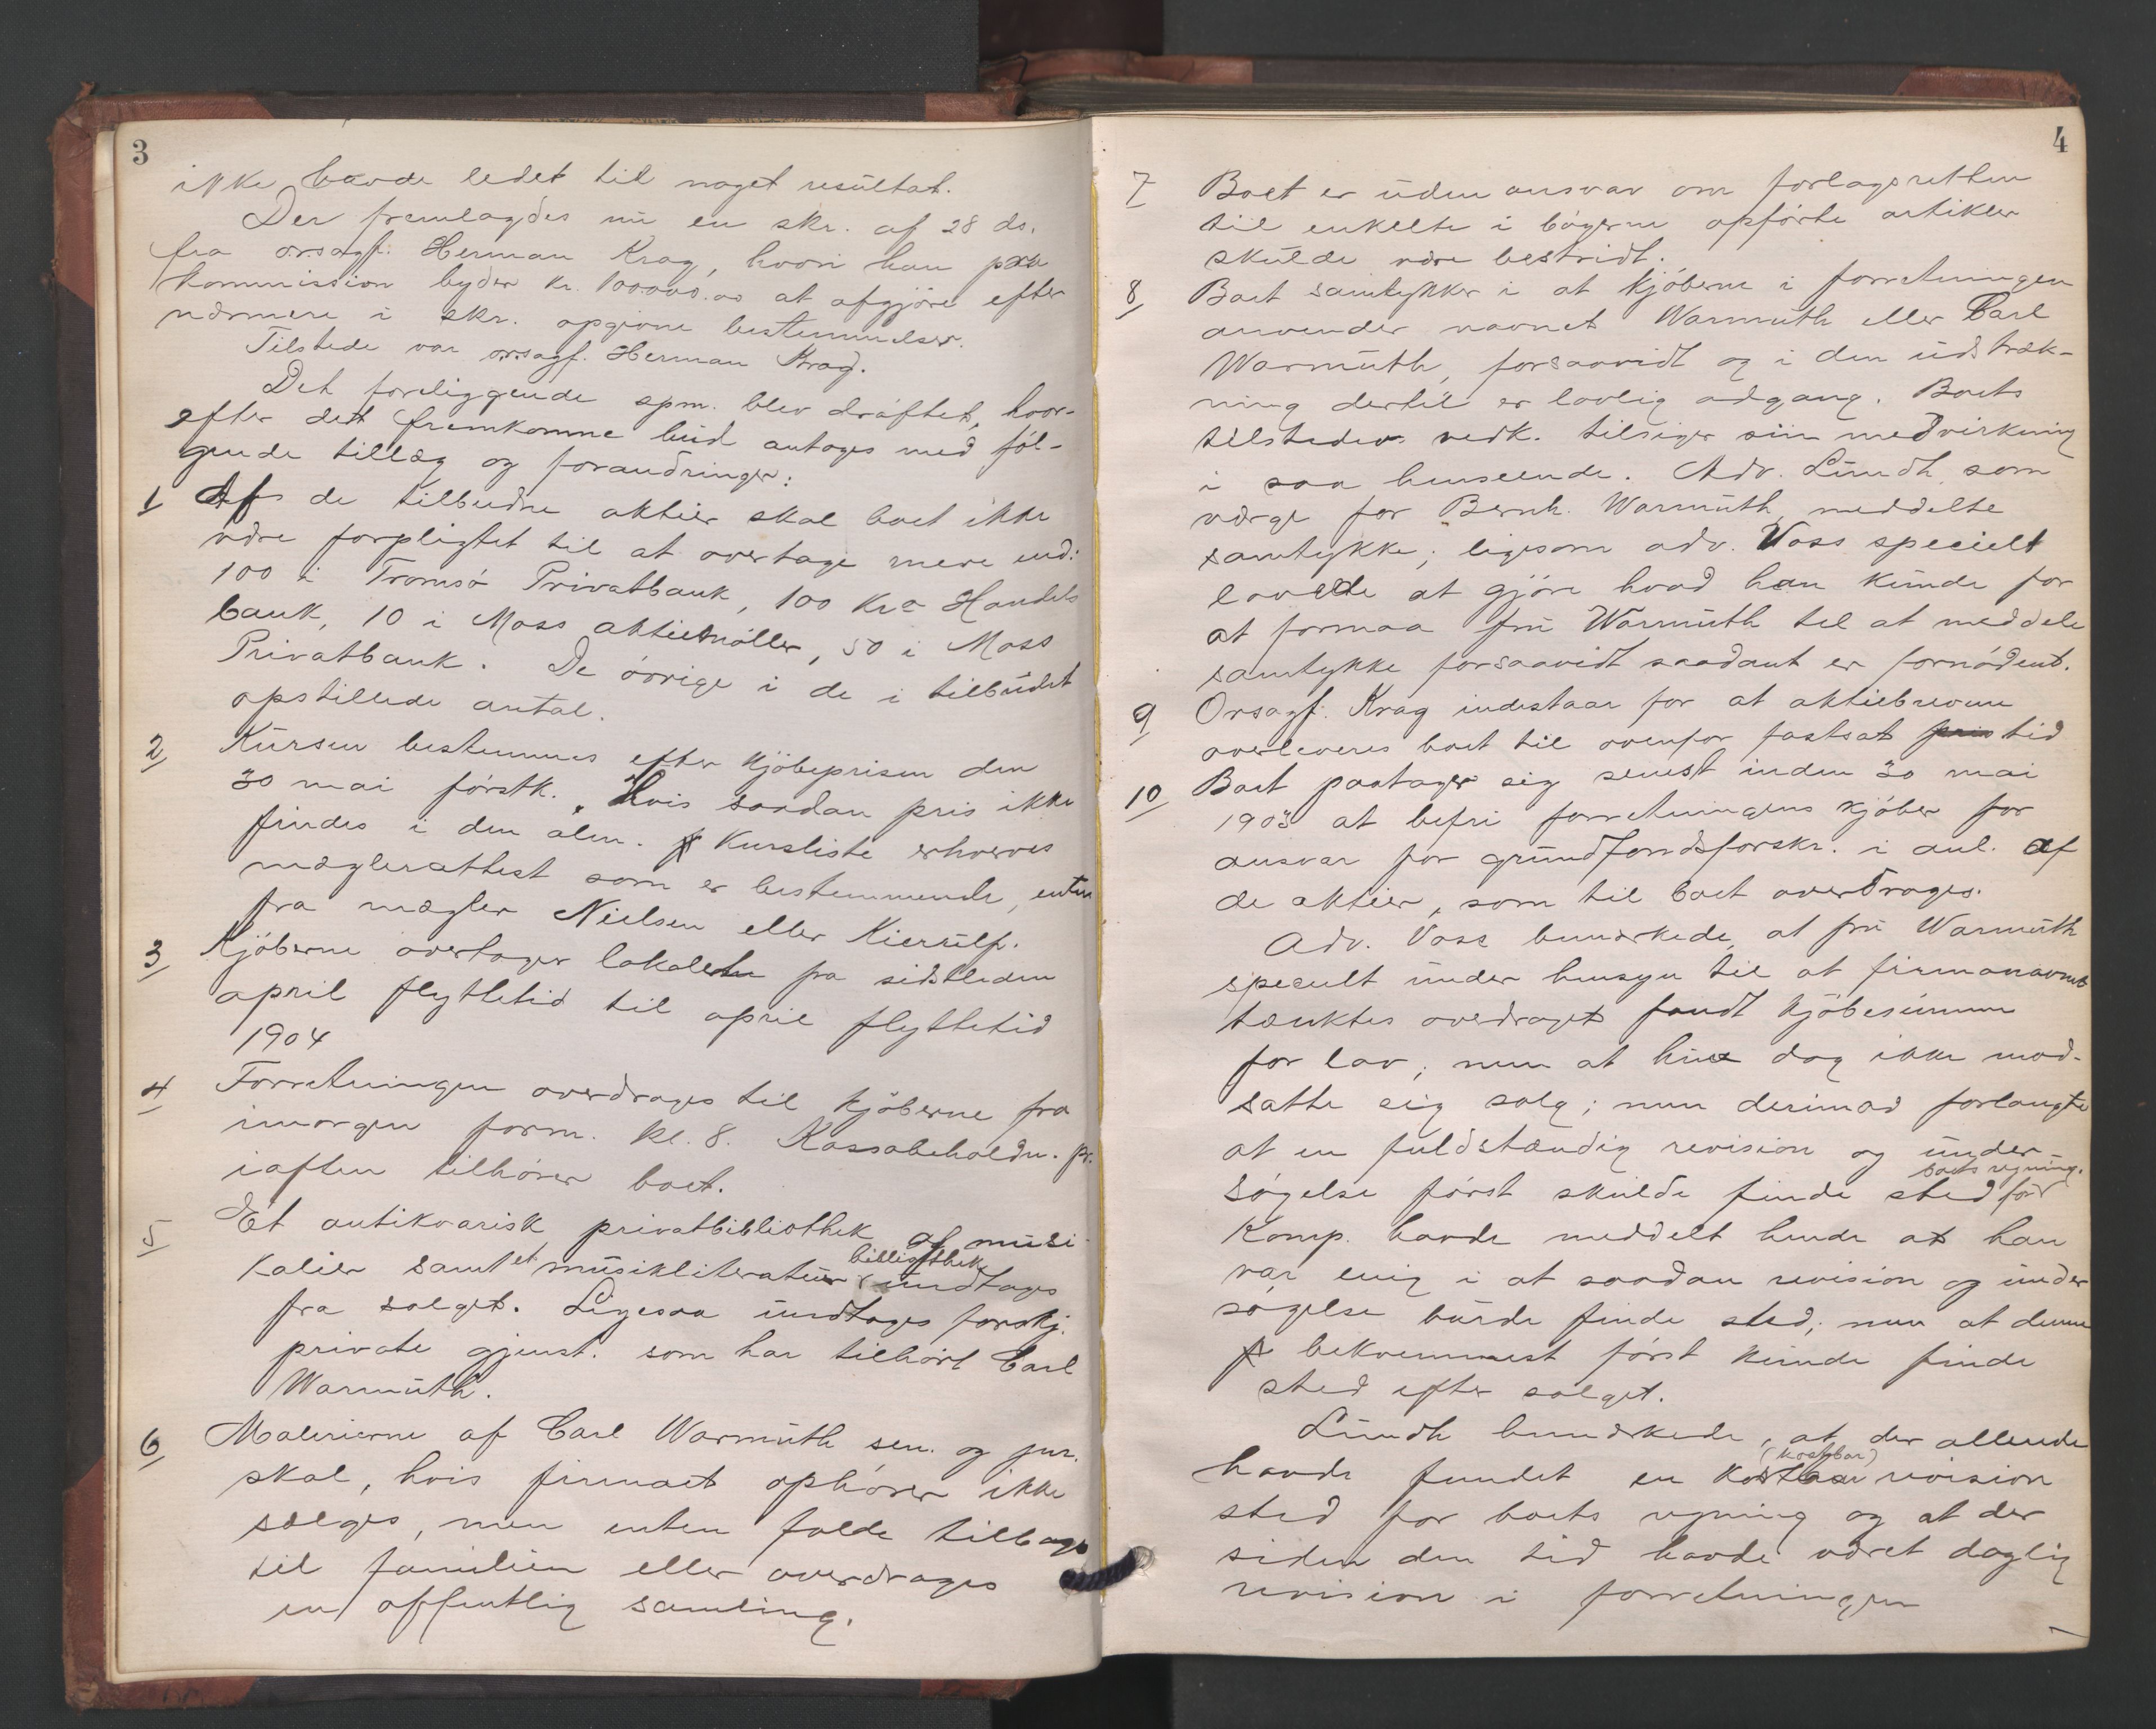 3
ikke havde ledet til noget resultat.
Der fremlagdes nu en skr. af 28 ds.
fra orsagf. Herman Krag, hvori han paa
kommission byder kr. 100000.00 at afgjöre efter
nærmere i skr. opgivne bestemmelser.
Tilstede var orsagf. Herman Krag.
Det foreliggende spm. blev dröftet, hvor-
efter det fremkomne bud antages med föl-
gende tillæg og forandringer:
1 Af de tilbudne aktier skal boet ikke
være forpligtet til at overtage mere end:
100 i Tromsö Privatbank, 100 Kra Handels
bank, 10 i Moss aktiemöller, 50 i Moss
Privatbank. De övrige i de i tilbudet
opstillede antal.
2 Kursen bestemmes efter kjöbeprisen den
30 mai förstk. Hvis saadan pris ikke
findes i den alm. kursliste erhverves
mæglerattest som er bestemmende, enten
fra mægler Nielsen eller Kierulf.
3 Kjöberne overtager lokalerne fra sidstleden
april flyttetid til april flyttetid
1904
4 Forretningen overdrages til kjöberne fra
imorgen form. kl. 8. Kassabeholdn. pr.
iaften tilhörer boet.
5 Et antikvarisk privatbibliothek af musi-
kalier samt et musikliteratur bibliothek undtages
fra salget. Ligesaa undtages forskj.
private gjenst. som har tilhört Carl
Warmuth.
6 Malerierne af Carl Warmuth sen. og jun.
skal, hvis firmaet ophörer ikke
sælges, men enten falde tilbage
til familien eller overdrages
en offentlig samling.
4
7 Boet er uden ansvar om forlagsretten
til enkelte i bögerne opförte artikler
skulde være bestridt.
8 Boet samtykker i at kjöberne i forretningen
anvender navnet Warmuth eller Carl
Warmuth, forsaavidt og i den udstræk-
ning dertil er lovlig adgang. Boets
tilstedev. vedk. tilsiger sin medvirkning
i saa henseende. Adv. Lundh, som
værge for Bernh. Warmuth, meddelte
samtykke; ligesom adv. Voss specielt
lovede at gjöre hvad han kunde for
at formaa fru Warmuth til at meddele
samtykke forsaavidt saadant er fornödent.
9 Orsagf. Krag indestaar for at aktiebrevene
overleveres boet til ovenfor fastsat pris tid
10 Boet paatager sig senest inden 30 mai
1903 at befri forretningens kjöber for
ansvar for grundfondsforskr. i anl. af
de aktier, som til boet overdrages.
Adv. Voss bemærkede, at fru Warmuth
specielt under hensyn til at firmanavnet
tænktes overdraget fandt kjöbesummen
for lav; men at hun dog ikke mod-
satte sig salg; men derimod forlangte
at en fuldstændig revision og under-
sögelse först skulde finde sted for boets regning.
Komp. havde meddelt hende at han
var enig i at saadan revision og under
sögelse burde finde sted; men at denne
bekvemmest först kunde finde
sted efter salget.
Lundh bemærkede, at der allerede
havde fundet en kostbar (kostbar) revision
sted for boets regning og at der
siden den tid havde været daglig
revision i forretningen